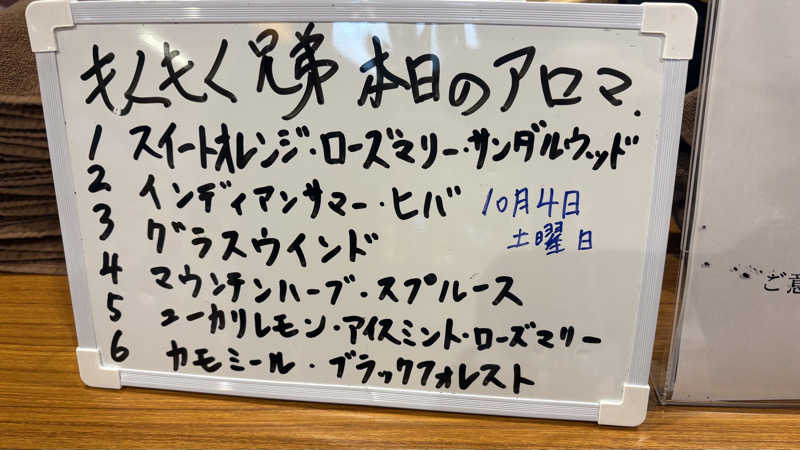 もくもく兄弟 本日のアロマ.
1 スイートオレンジ・ローズマリー・サンダルウッド
2 インディアンサマー・ヒバ
10月4日
土曜日
3 グラスウインド
4 マウンテンハーブ・スプルース
5 ユーカリレモン・アイスミント・ローズマリー
6 カモミール・ブラックフォレスト
ご意